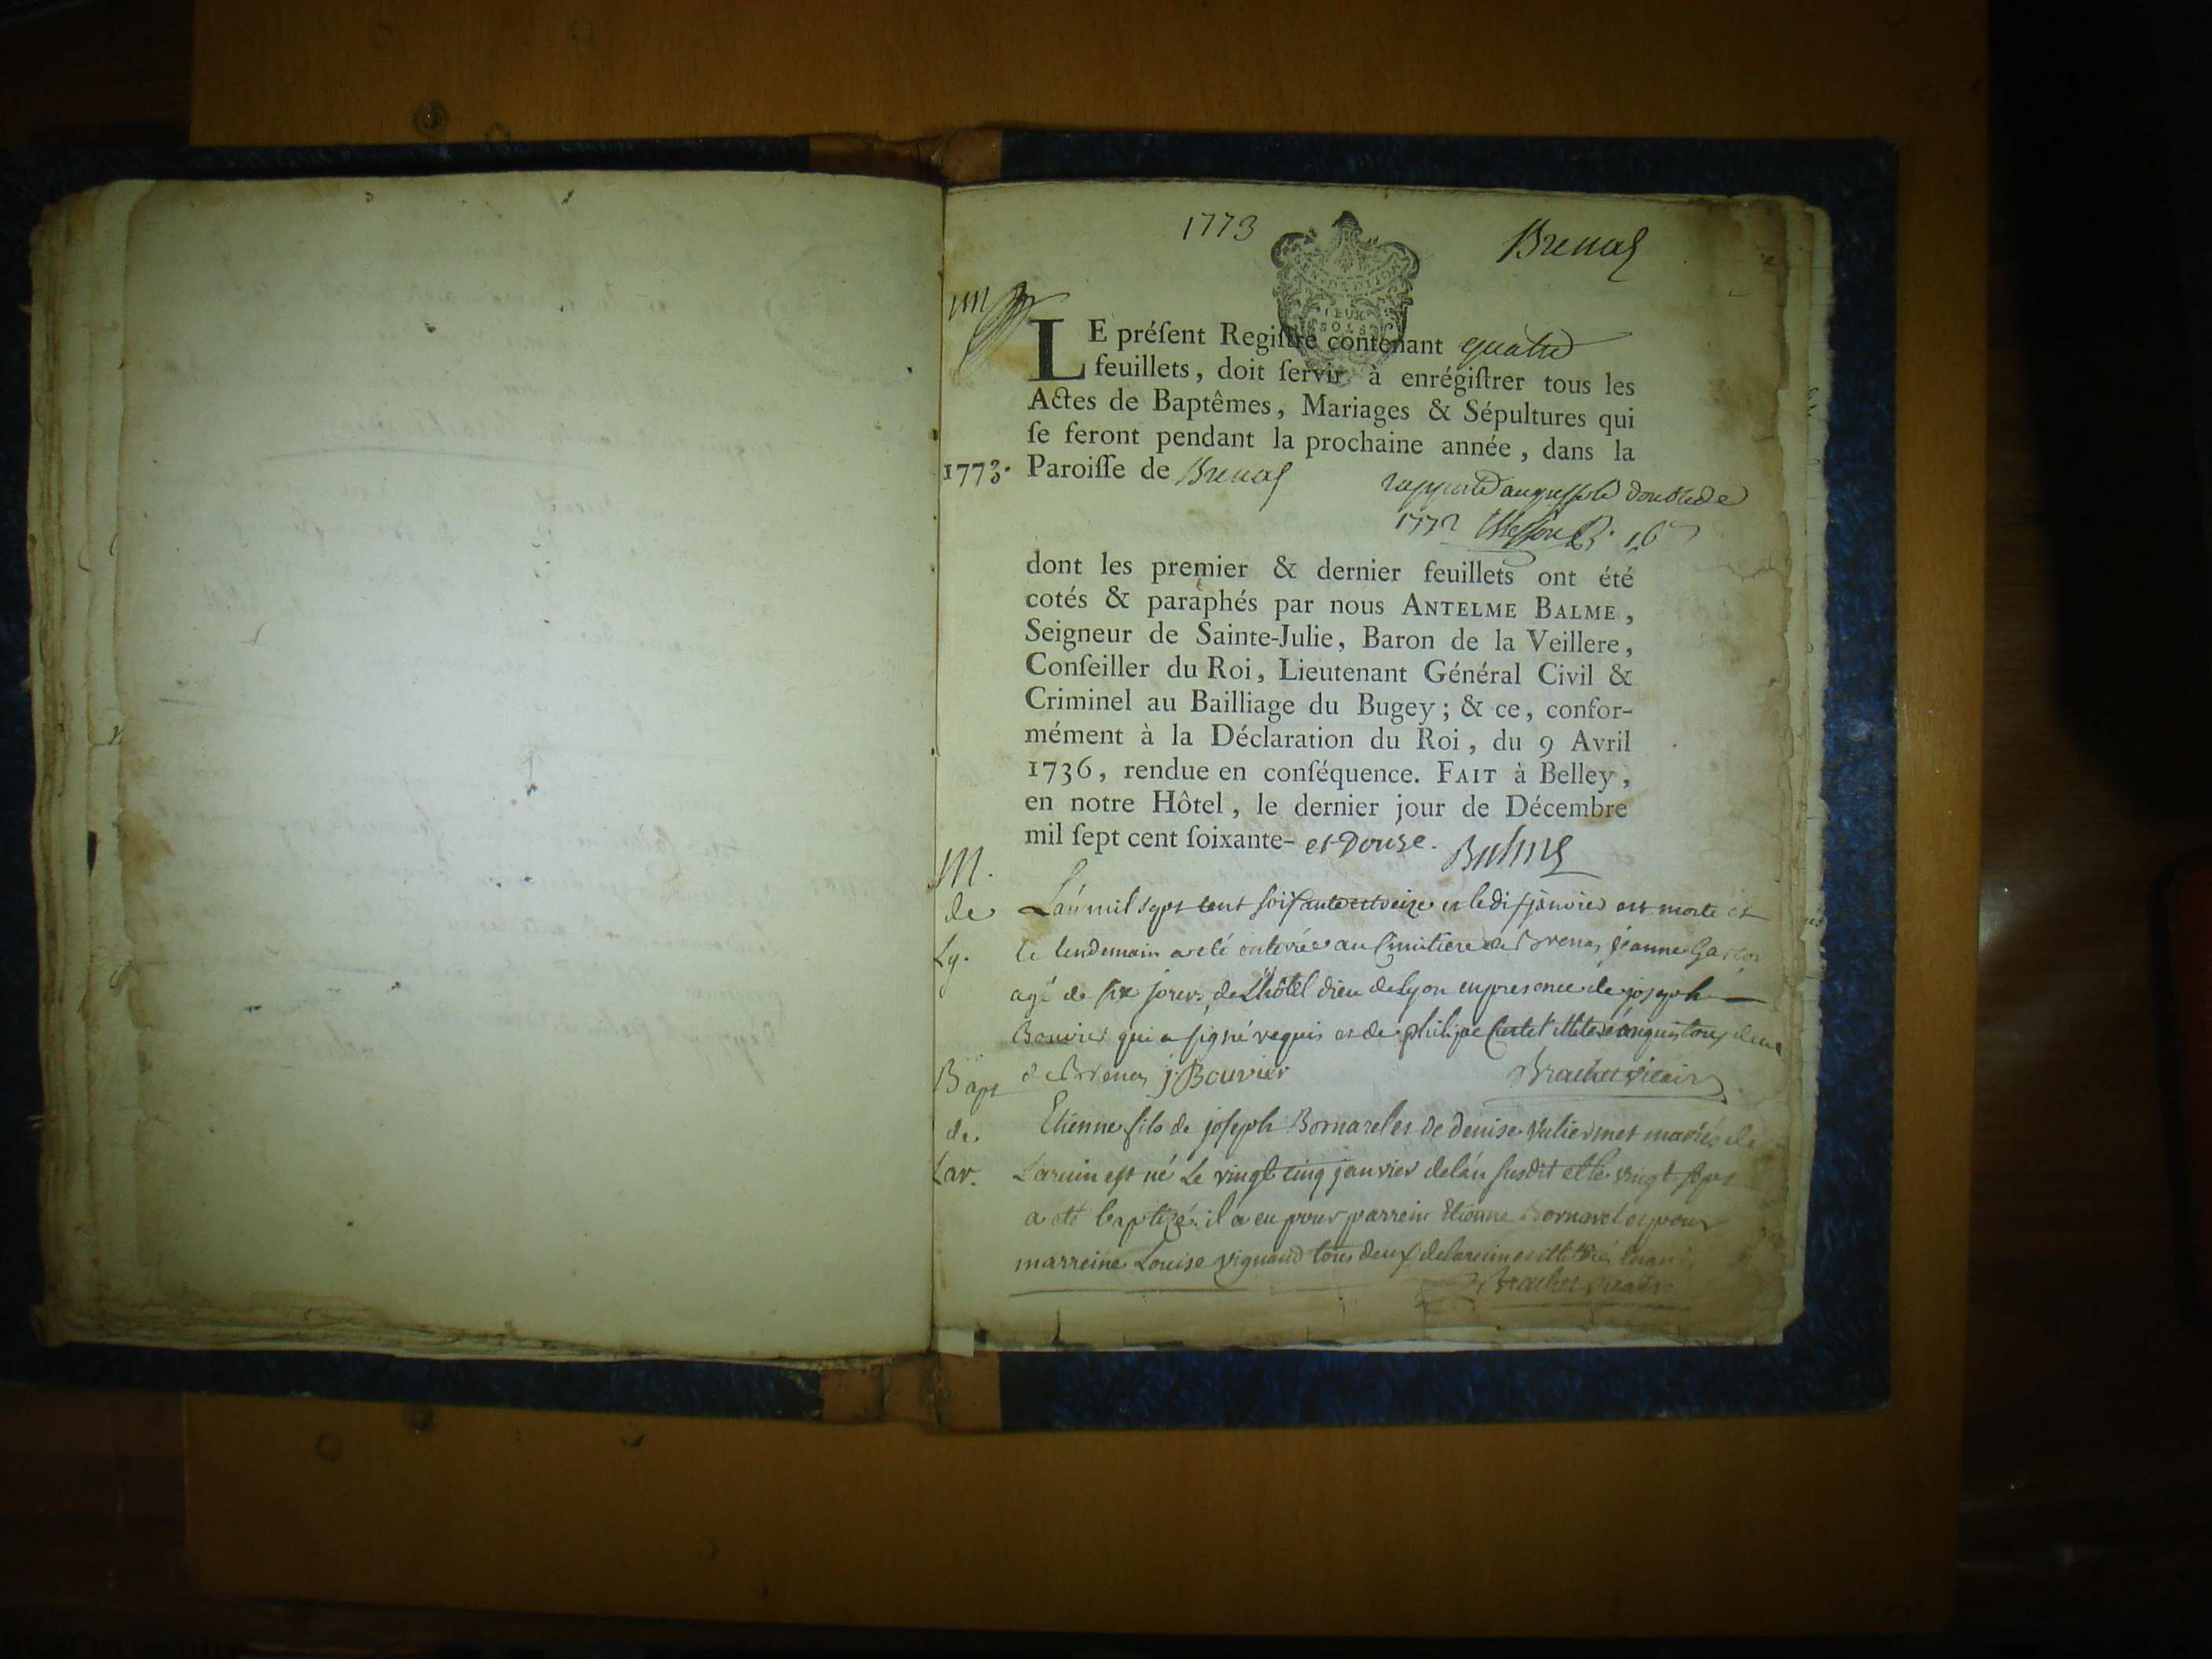 1773
Brenas
DEUX
SOLS
LE préſent Regiſtre contenant quatre
feuillets, doit ſervir à enrégiſtrer tous les
Actes de Baptêmes, Mariages & Sépultures qui
ſe feront pendant la prochaine année, dans la
1773. Paroiſſe de Brenas
double de
1772
dont les premier & dernier feuillets ont été
cotés & paraphés par nous ANTELME BALME,
Seigneur de Sainte-Julie, Baron de la Veillere,
Conſeiller du Roi, Lieutenant Général Civil &
Criminel au Bailliage du Bugey; & ce, confor-
mément à la Déclaration du Roi, du 9 Avril
1736, rendue en conſéquence. FAIT à Belley,
en notre Hôtel, le dernier jour de Décembre
mil ſept cent ſoixante- et Douze. Balme
M.
de L'an mil sept cent soixante et treize et le dix janvier est morte et
Ly. le lendemain a eté enterrée au Cimitiere de Brenas jeanne
agé de six jours de L'hôtel dieu de Lyon en presence de joseph
Bouvier qui a signé requis et de philipe illiteré enquis tous deux
de Brenas j: Bouvier Brachet vicaire
Bapt
de Etienne fils de joseph Bornarel et de denise mariés de
Lar. Laruin est né Le vingt cinq janvier de l'an susdit et le vingt sept
a eté baptizé. il a eu pour parrein Etienne Bornarel et pour
marreine Louise vignand tous deux de laruin et illiterés
Brachet vicaire